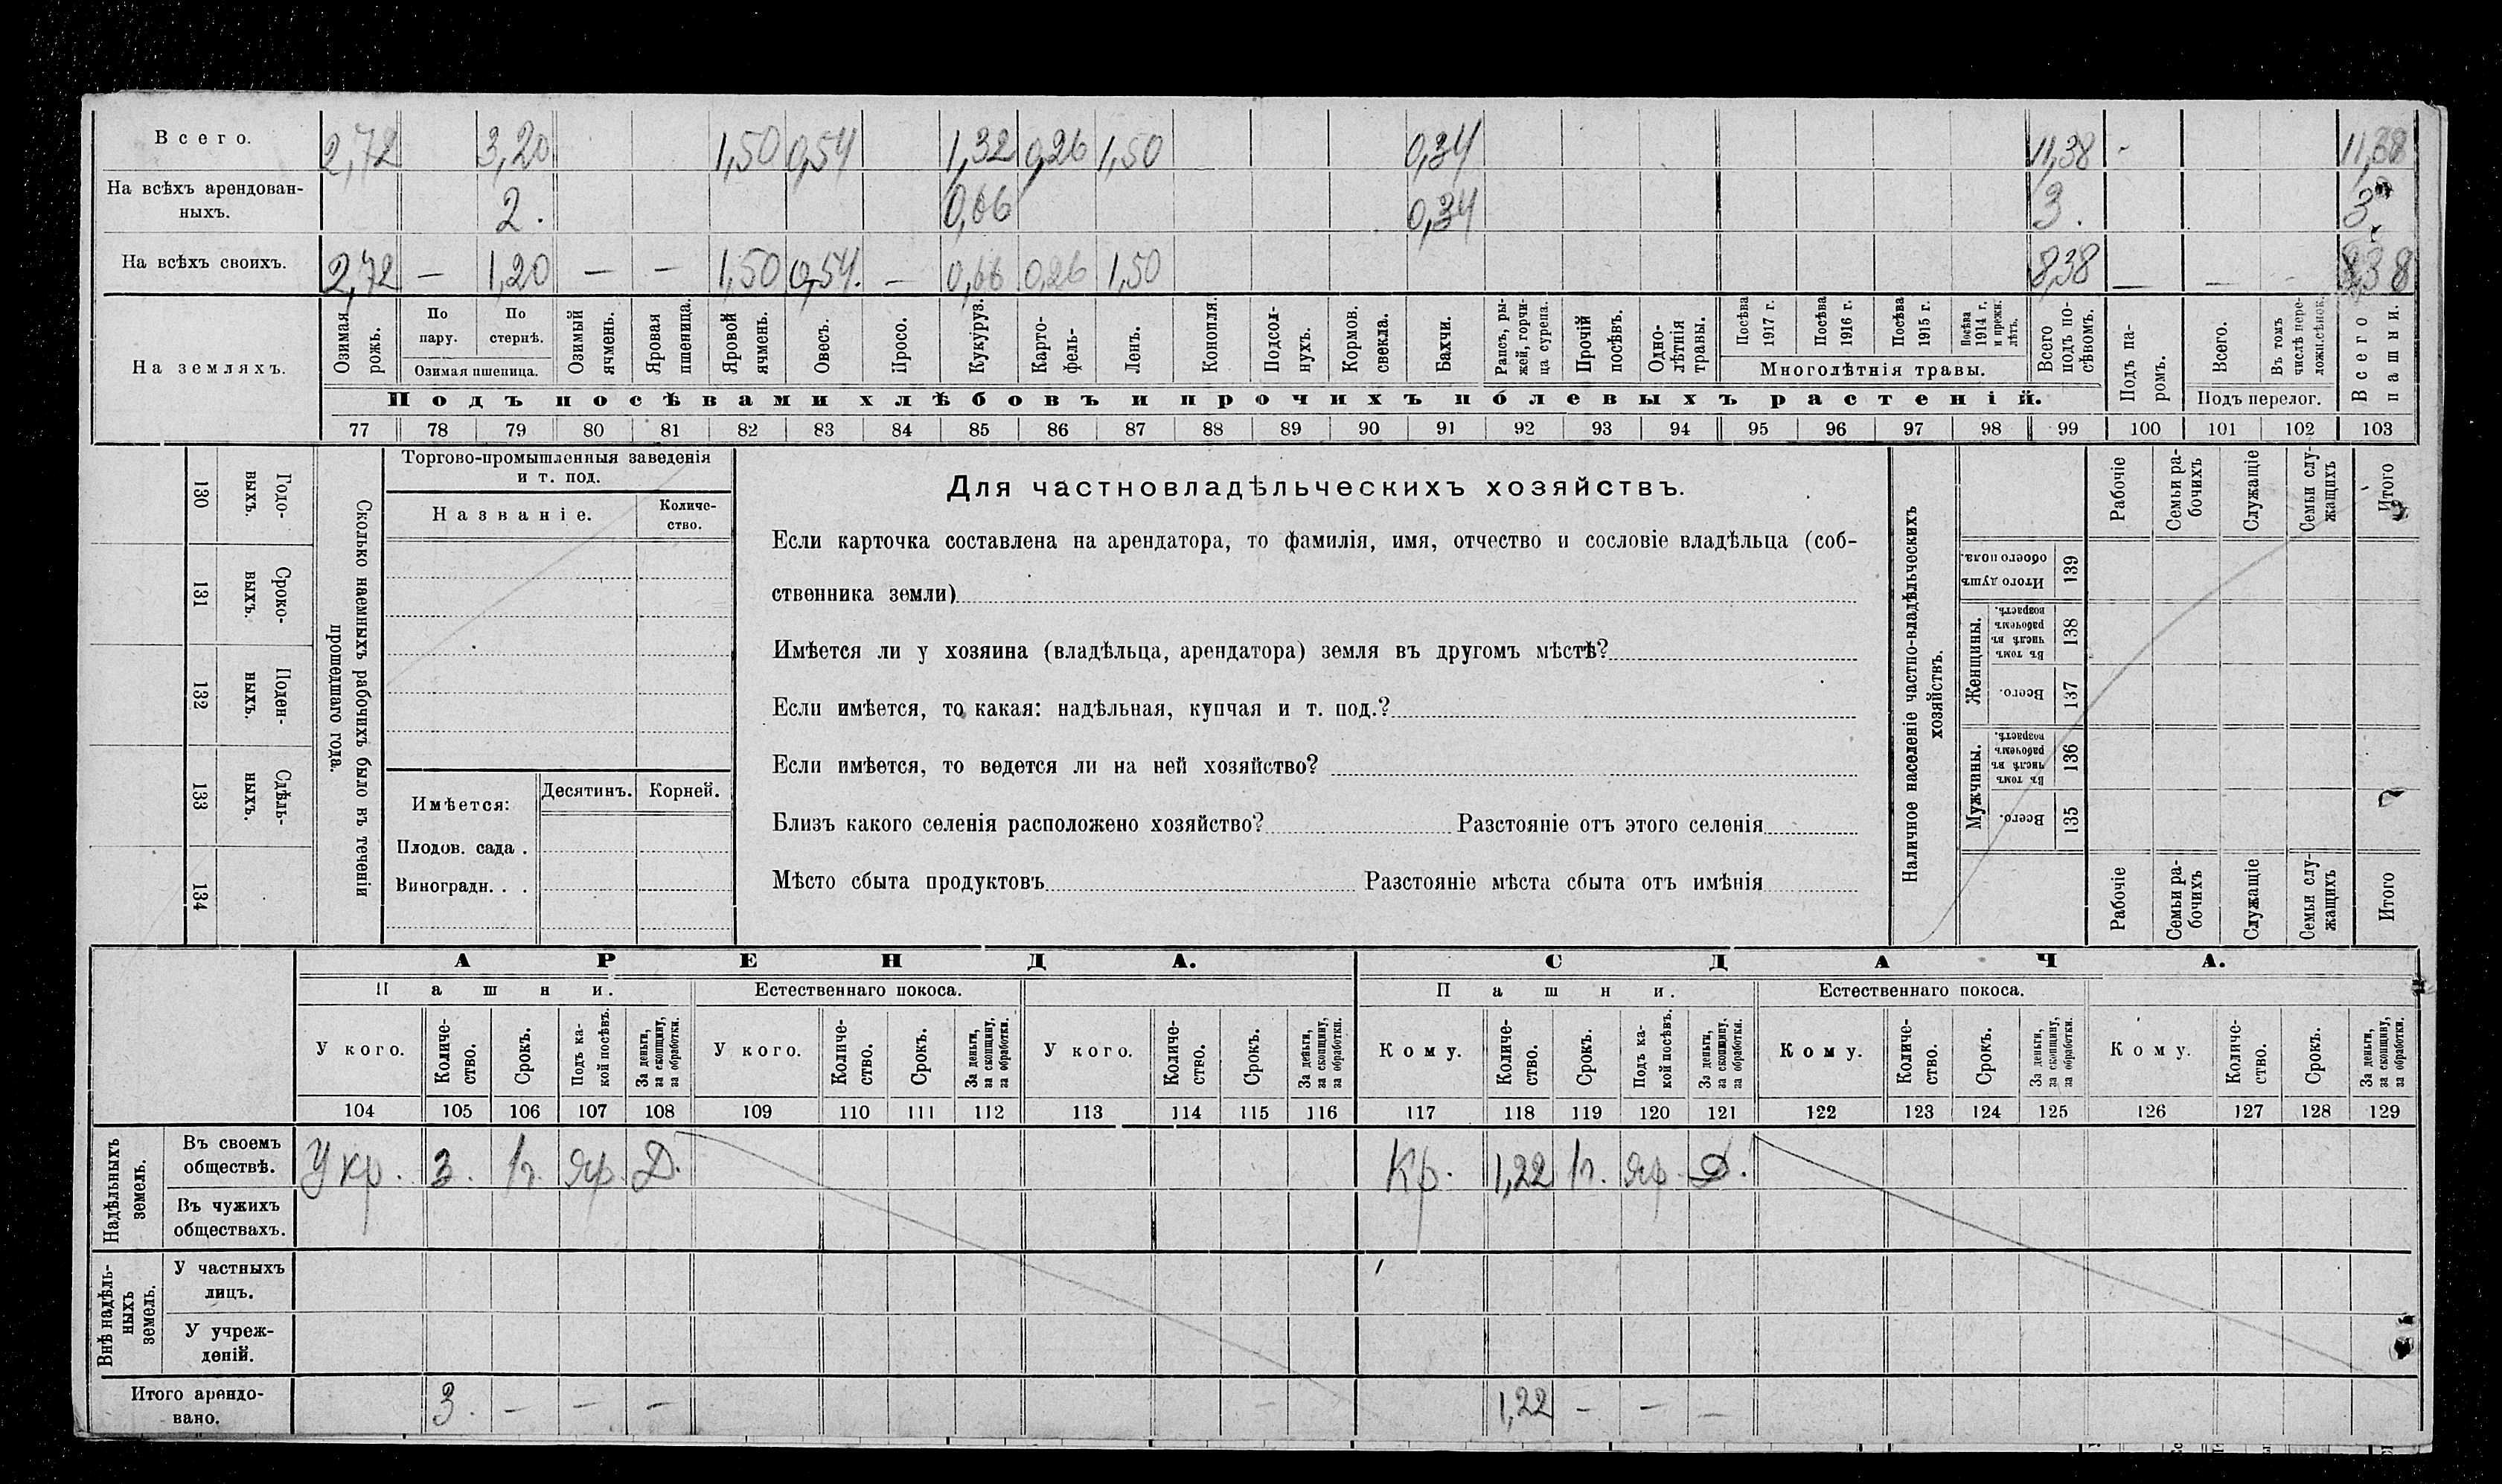 Всего. 2,72 3,20 1,50 0,54 1,32 0,26 1,50 0,34 11,38 - 11,38
На всѣхъ арендован-
ныхъ. 2. 0,66 0,34 3. 3.
На всѣхъ своихъ. 2,72 — 1,20 — — 1,50 0,54. — 0,66 0,26 1,50 8,38 — — — 8,38
На земляхъ.
Озимая рожь.
По пару.
По стернѣ.
Озимая пшеница.
Озимый ячмень.
Яровая пшеница.
Яровой ячмень.
Овесъ.
Просо.
Кукуруз.
Карто-
фель-
Ленъ.
Конопля.
Подсол-
нухъ.
Кормов.
свекла.
Бахчи.
Рапсъ, ры-
жей, горчи-
ца сурепа.
Прочій
посѣвъ.
Одно-
лѣтнія
травы.
Посѣва
1917 г.
Посѣва
1916 г.
Посѣва
1915 г.
Посѣва
1914 г.
и прежн.
лѣтъ.
Многолѣтнія травы.
Всего
подъ по-
сѣвомъ.
Подъ па-
ромъ.
Всего.
Въ томъ
числѣ пере-
ложн. сѣнок.
Подъ перелог.
Всего
пашни.
Подъ посѣвами хлѣбовъ и прочихъ полевыхъ растеній.
77 78 79 80 81 82 83 84 85 86 87 88 89 90 91 92 93 94 95 96 97 98 99 100 101 102 103
130 Годо-
ныхъ.
131 Сроко-
выхъ.
132 Поден-
ныхъ.
133 Сдѣль-
ныхъ.
134
Сколько наемныхъ рабочихъ было въ теченіи
прошедшаго года.
Торгово-промышленныя заведенія
и т. под.
Названіе.
Количе-
ство.
Имѣется:
Десятинъ. Корней.
Плодов. сада .
Виноградн. . .
Для частновладѣльческихъ хозяйствъ.
Если карточка составлена на арендатора, то фамилія, имя, отчество и сословіе владѣльца (соб-
ственника земли)
Имѣется ли у хозяина (владѣльца, арендатора) земля въ другомъ мѣстѣ?
Если имѣется, то какая: надѣльная, купчая и т. под.?
Если имѣется, то ведется ли на ней хозяйство?
Близъ какого селенія расположено хозяйство? Разстояніе отъ этого селенія
Мѣсто сбыта продуктовъ Разстояніе мѣста сбыта отъ имѣнія
Наличное населеніе частно-владѣльческихъ
хозяйствъ.
Рабочіе
Семьи ра-
бочихъ
Служащіе
Семьи слу-
жащихъ
Итого
Итого душъ
обоего пола.
139
Женщины.
Въ томъ
числѣ въ
рабочемъ
возрастѣ.
138
Всего.
137
Мужчины.
Въ томъ
числѣ въ
рабочемъ
возрастѣ.
136
Всего.
135
Рабочіе
Семьи ра-
бочихъ
Служащіе
Семьи слу-
жащихъ
Итого
АРЕНДА. СДАЧА.
Пашни. Естественнаго покоса. Пашни. Естественнаго покоса.
У кого.
Количе-
ство.
Срокъ.
Подъ ка-
кой посѣвъ.
За деньги,
за скопщину,
за обработки.
У кого.
Количе-
ство.
Срокъ.
За деньги,
за скопщину,
за обработки.
У кого.
Количе-
ство.
Срокъ.
За деньги,
за скопщину,
за обработки.
Кому.
Количе-
ство.
Срокъ.
Подъ ка-
кой посѣвъ.
За деньги,
за скопщину,
за обработки.
Кому.
Количе-
ство.
Срокъ.
За деньги,
за скопщину,
за обработки.
Кому.
Количе-
ство.
Срокъ.
За деньги,
за скопщину,
за обработки.
104 105 106 107 108 109 110 111 112 113 114 115 116 117 118 119 120 121 122 123 124 125 126 127 128 129
Надѣльныхъ
земель.
Въ своемъ
обществѣ. У кр. 3. Яр. Д. Кр. 1,22 Яр. Д.
Въ чужихъ
обществахъ.
Внѣ надѣль-
ныхъ
земель.
У частныхъ
лицъ.
У учреж-
деній.
Итого арендо-
вано. 3. — — — 1,22 — — —